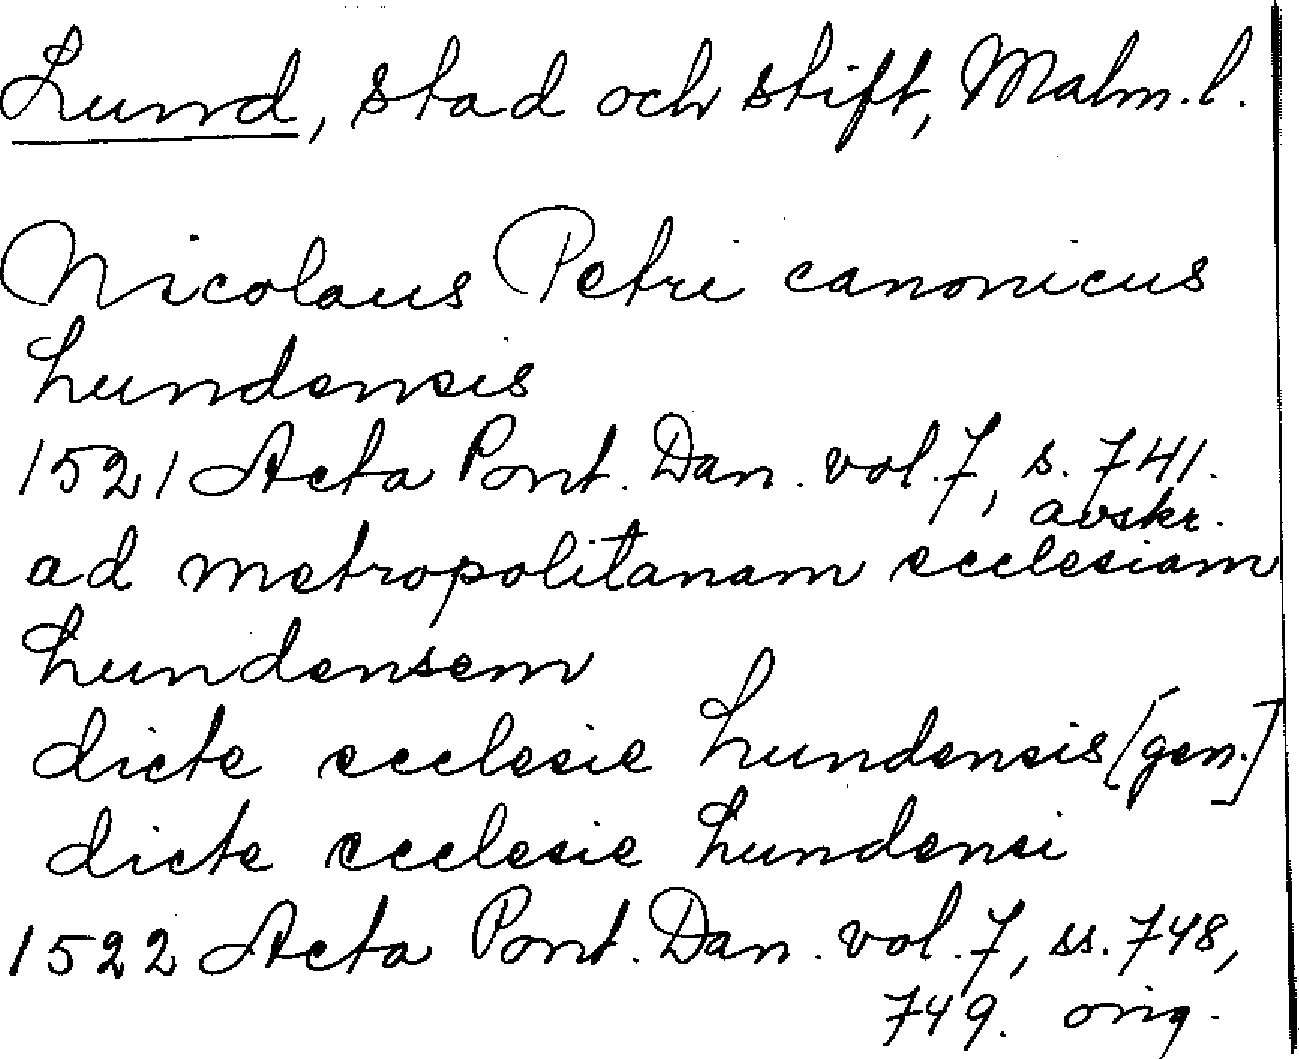 Lund, stad och stift, Malm. l.
Nicolaus Petri canonicus
Lundensis
1521 Acta Pont. Dan. vol. 7, s. 741.
avskr.
ad metropolitanam ecclesiam
Lundensem
dicte ecclesie Lundensis [gen.]
dicte ecclesie Lundensi
1522 Acta Pont. Dan. vol. 7, ss. 748,
749. orig.